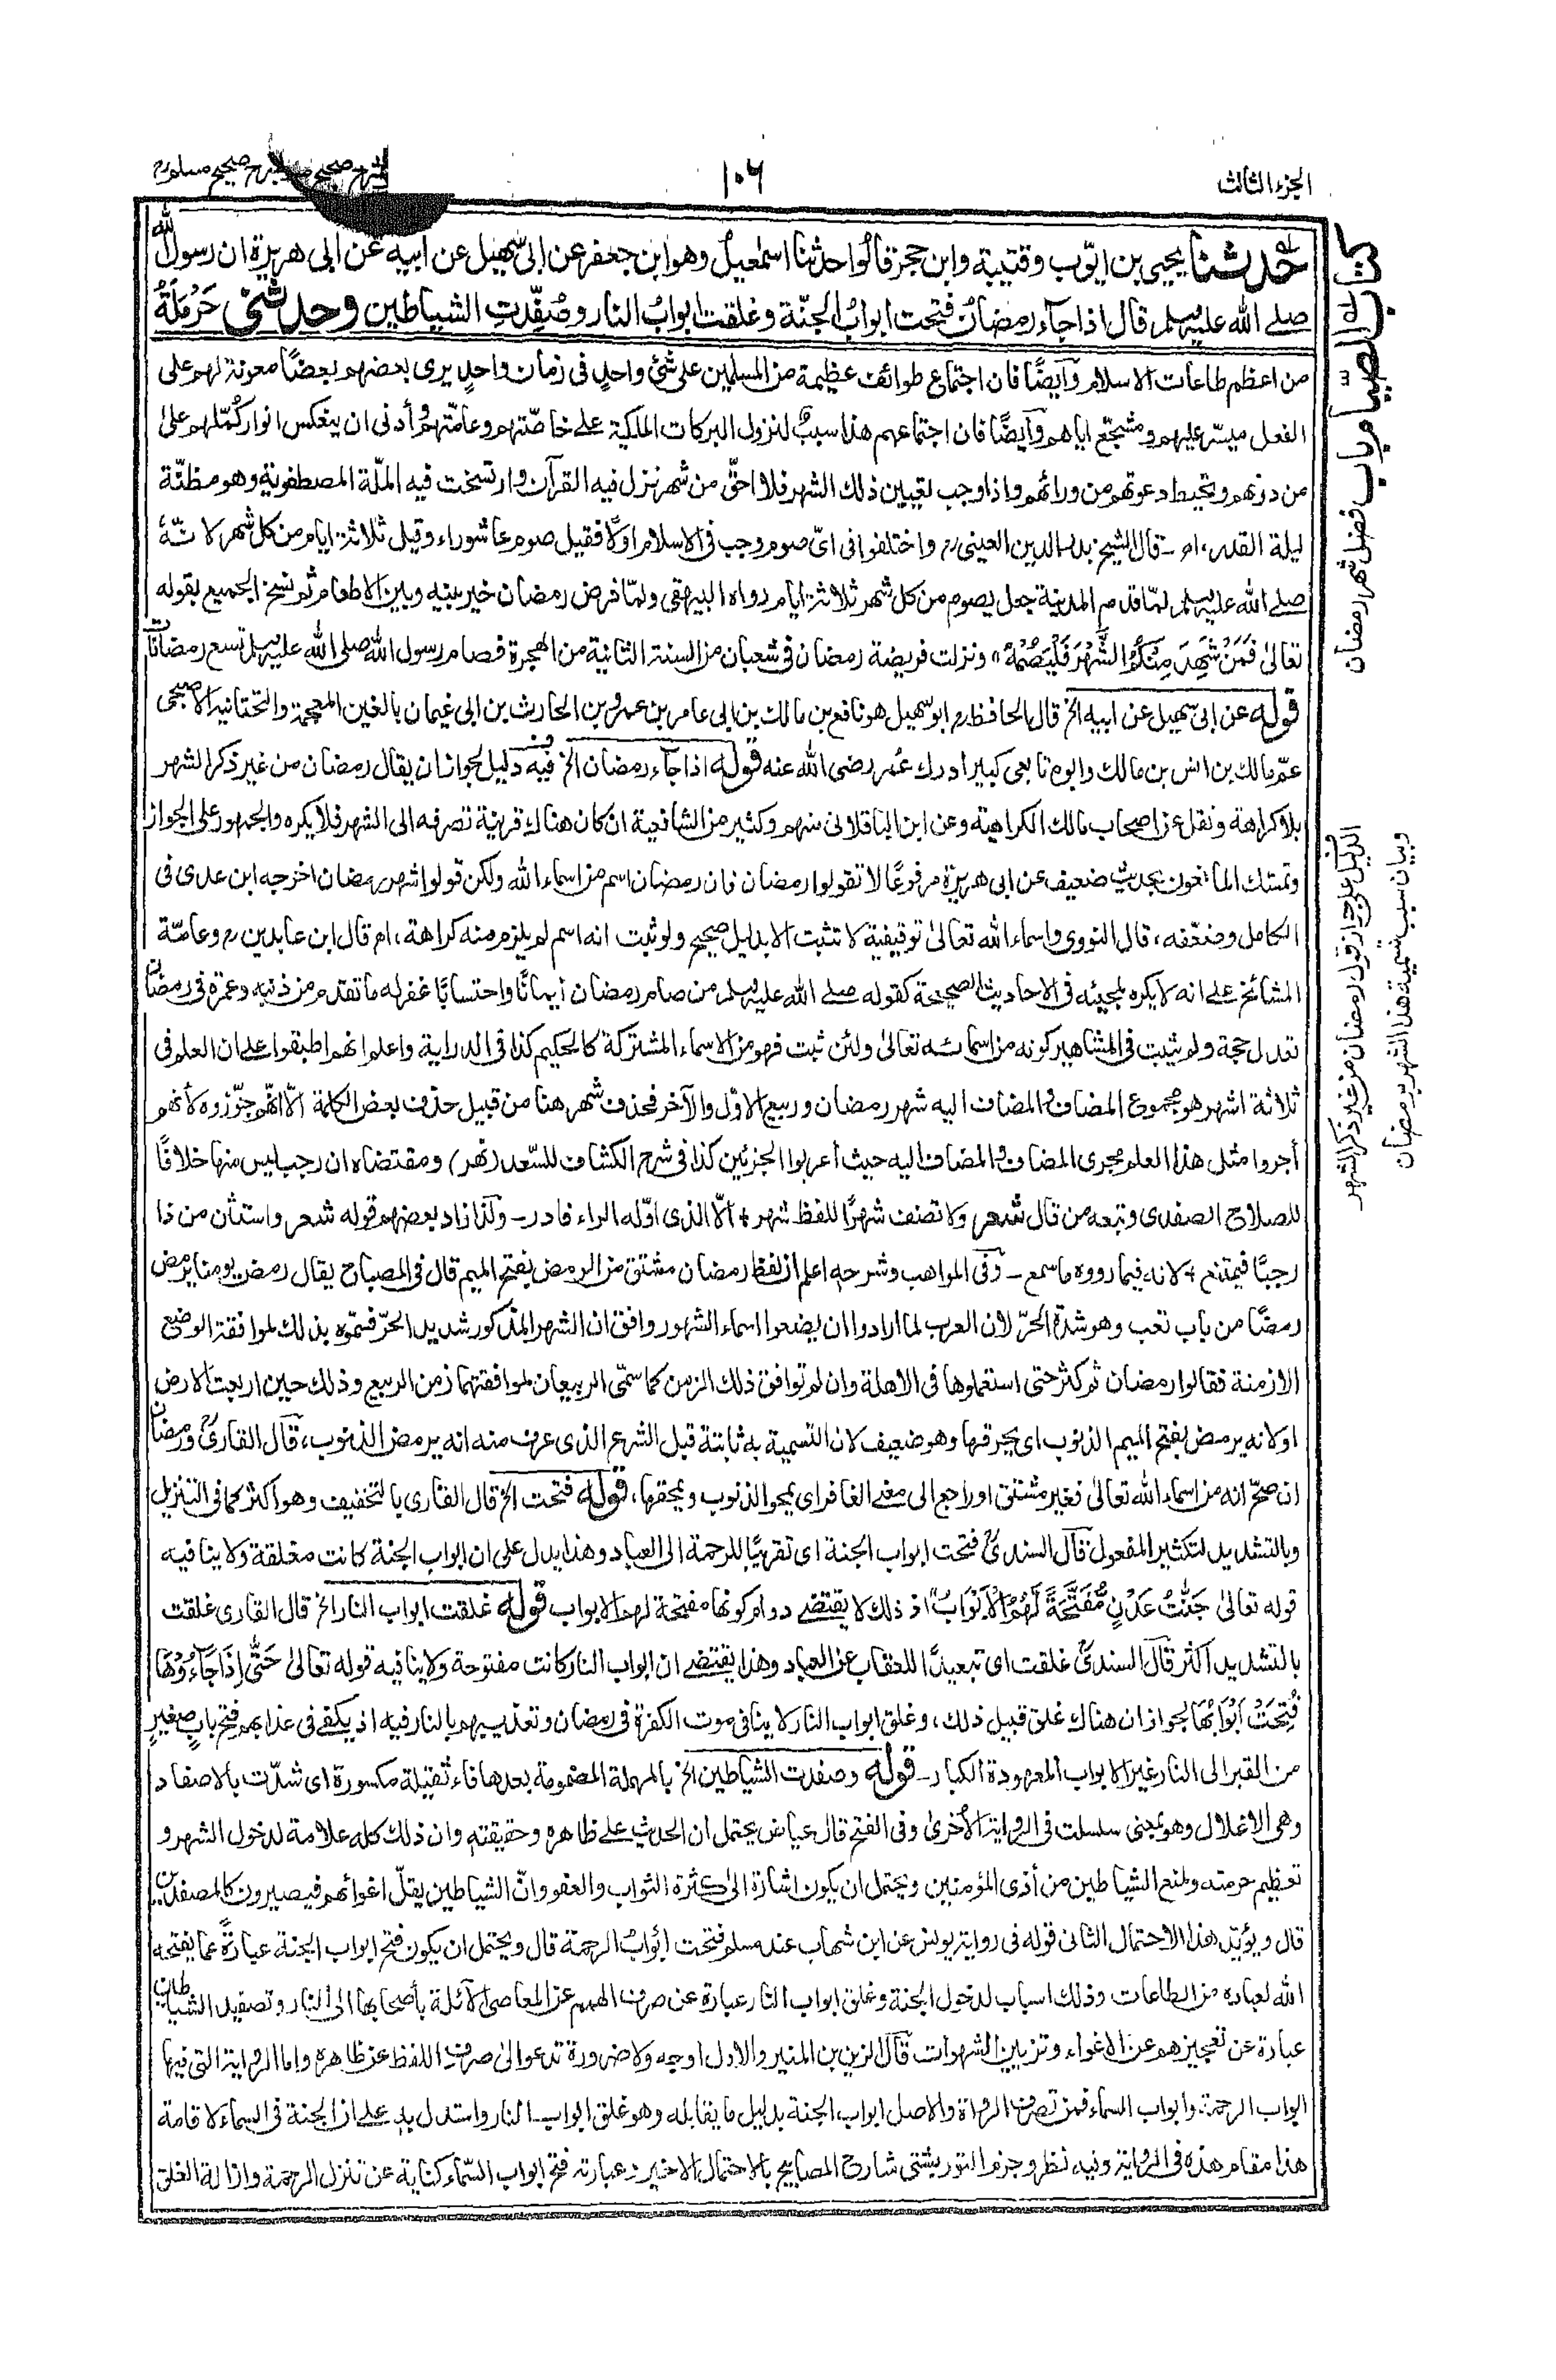 الجزء الثالث
١٠٦
شرح صحيح مسلم
حدثنا يحيى بن ايوب وقتيبة وابن حجر قالوا حدثنا اسمعيل وهو ابن جعفر عن ابى سهيل عن ابيه عن ابى هريرة ان رسول الله
صلے الله عليه وسلم قال اذا جآء رمضان فتحت ابواب الجنّة وغلقت ابواب النار وصُفِّدتِ الشياطين وحدثنى حَرْمَلَةُ
من اعظم طاعات الاسلام وآيضًا فان اجتماع طوائف عظيمة من المسلمين على شئ واحدٍ فى زمان واحدٍ يرى بعضهم بعضًا معونة لهم على
الفعل ميسّر عليهم ومشجّع اياهم وآيضًا فان اجتماعهم هذا سببٌ لنزول البركات الملكية على خاصّتهم وعامّتهم وأدنى ان ينعكس انوار كُمّلهم علىٰ
من دونهم وتحيط دعوتهم من ورائهم واذا وجب تعيين ذلك الشهر فلا احقّ من شهر نزل فيه القرآن وارتسخت فيه الملّة المصطفوية وهو مظنّة
ليلة القدر، اه - قال الشيخ بدر الدين العينى رح واختلفوا فى اىّ صوم وجب فى الاسلام اولًا فقيل صوم عاشوراء وقيل ثلاثة ايام من كل شهر لانّهٗ
صلے الله عليه وسلم لمّا قدم المدينة جعل يصوم من كل شهر ثلاثة ايام رواه البيهقى ولمّا فرض رمضان خير بينه وبين الاطعام ثم نسخ الجميع بقوله
تعالىٰ فَمَنْ شَهِدَ مِنْكُمُ الشَّهْرَ فَلْيَصُمْهُ، ونزلت فريضة رمضان فى شعبان من السنة الثانية من الهجرة فصام رسول الله صلى الله عليه وسلم تسع رمضانات
قوله عن ابى سهيل عن ابيه الخ قال الحافظ رح ابو سهيل هو نافع بن مالك بن ابى عامر بن عمرو بن الحارث بن ابى غيمان بالغين المعجمة والتحتانية الاصبحى
عم مالك بن انس بن مالك وابوه تابعى كبير ادرك عُمر رضى الله عنه قوله اذا جآء رمضان الخ فيه دليل لجواز ان يقال رمضان من غير ذكر الشهر
بلا كراهة ونقل عن اصحاب مالك الكراهية وعن ابن الباقلانى منهم وكثير من الشافعية ان كان هناك قرينة تصرفه الى الشهر فلا يكره والجمهور على الجواز
وتمسك المانعون بحديث ضعيف عن ابى هريرة مرفوعًا لا تقولوا رمضان فان رمضان اسم من اسماء الله ولكن قولوا شهر رمضان اخرجه ابن عدى فى
الكامل وضعّفه، قال النووى واسماء الله تعالىٰ توقيفية لا تثبت الا بدليل صحيح ولو ثبت انه اسم لم يلزم منه كراهة، اه قال ابن عابدين رح وعامّة
المشائخ على انه لا يكره لمجيئه فى الاحاديث الصحيحة كقوله صلے الله عليه وسلم من صام رمضان ايمانًا واحتسابًا غفر له ما تقدم من ذنبه وعمرة فى رمضان
تعدل حجة ولم يثبت فى المشاهير كونه من اسمائه تعالىٰ ولئن ثبت فهو من الاسماء المشتركة كالحكيم كذا فى الدراية واعلم انهم اطبقوا على ان العلم فى
ثلاثة اشهر هو مجموع المضاف والمضاف اليه شهر رمضان وربيع الاوّل والآخر فحذف شهر هنا من قبيل حذف بعض الكلمة الّا انهم جوّزوه لأنهم
أجروا مثل هذا العلم مجرى المضاف والمضاف اليه حيث أعربوا الجزئين كذا فى شرح الكشاف للسّعد (نهر) ومقتضاه ان رجب ليس منها خلافًا
للصلاح الصفدى وتبعه من قال شعر ولا تضف شهرًا للفظ شهر + الّا الذى اوّله الراء فادر - ولذا زاد بعضهم قوله شعر واستثن من ذا
رجبًا فيمتنع + لانه فيما رووه ما سمع - وفى المواهب وشرحه اعلم ان لفظ رمضان مشتق من الرمض بفتح الميم قال فى المصباح يقال رمض يومنا يرمض
رمضًا من باب تعب وهو شدة الحرّ لان العرب لما ارادوا ان يضعوا اسماء الشهور وافق ان الشهر المذكور شديد الحرّ فسمّوه بذلك لموافقة الوضع
الازمنة فقالوا رمضان ثم كثر حتى استعملوها فى الاهلة وان لم توافق ذلك الزمن كما سمّى الربيعان لموافقتهما زمن الربيع وذلك حين اربعت الارض
او لانه يرمض بفتح الميم الذنوب اى يحرقها وهو ضعيف لان التسمية به ثابتة قبل الشرع الذى عرف منه انه يرمض الذنوب، قال القارىؒ ورمضان
ان صحّ انه من اسماء الله تعالىٰ فغير مشتق او راجع الى معنى الغافر اى يمحو الذنوب ويمحقها، قوله فتحت الخ قال القارى بالتخفيف وهو أكثر كما فى التنزيل
وبالتشديد لتكثير المفعول قال السندىؒ فتحت ابواب الجنة اى تقريبًا للرحمة الى العباد وهذا يدل على ان ابواب الجنة كانت مغلقة ولا ينافيه
قوله تعالىٰ جَنّٰتُ عَدْنٍ مُّفَتَّحَةً لَّهُمُ الْاَبْوَابُ اذ ذلك لا يقتضے دوام كونها مفتحة لهم الابواب قوله غلقت ابواب النار الخ قال القارى غلقت
بالتشديد أكثر قال السندىؒ غلقت اى تبعيدًا للعقاب عن العباد وهذا يقتضے ان ابواب النار كانت مفتوحة ولا ينافيه قوله تعالىٰ حَتّٰى اِذَا جَآءُوْهَا
فُتِحَتْ اَبْوَابُهَا لجواز ان هناك غلق قبيل ذلك، وغلق ابواب النار لا ينافى موت الكفرة فى رمضان وتعذيبهم بالنار فيه اذ يكفے فى عذابهم فتح بابٍ صغيرٍ
من القبر الى النار غير الابواب المعهودة الكبار - قوله وصفدت الشياطين الخ بالمهملة المضمومة بعدها فاء ثقيلة مكسورة اى شدّت بالاصفاد
وهى الاغلال وهو بمعنى سلسلت فى الرواية الأخرىٰ وفى الفتح قال عياض يحتمل ان الحديث على ظاهره وحقيقته وان ذلك كله علامة لدخول الشهر و
تعظيم حرمته ولمنع الشياطين من أذى المؤمنين ويحتمل ان يكون اشارة الىٰ كثرة الثواب والعفو وانّ الشياطين يقلّ اغوائهم فيصيرون كالمصفدين
قال ويؤيّد هذا الاحتمال الثانى قوله فى رواية يونس عن ابن شهاب عند مسلم فتحت ابوابُ الرحمة قال ويحتمل ان يكون فتح ابواب الجنة عبارةً عما يفتحه
الله لعباده من الطاعات وذلك اسباب لدخول الجنة وغلق ابواب النار عبارة عن صرف الهمم عن المعاصى الآئلة بأصحابها الى النار وتصفيد الشياطين
عبارة عن تعجيزهم عن الاغواء وتزيين الشهوات قال الزين بن المنير والاول اوجه ولا ضرورة تدعو الىٰ صرف اللفظ عن ظاهره واما الرواية التى فيها
ابواب الرحمة وابواب السماء فمن تصرف الرواة والاصل ابواب الجنة بدليل ما يقابله وهو غلق ابواب النار واستدل به على ان الجنة فى السماء لاقامة
هذا مقام هذه فى الرواية وفيه نظر وجزم التوربشتى شارح المصابيح بالاحتمال الاخير وعبارته فتح ابواب السّماء كناية عن تنزل الرحمة وازالة الغلق
كتاب الصيام باب فضل شهر رمضان
الدليل على جواز قول رمضان من غير ذكر الشهر
وبيان سبب تسمية هذا الشهر برمضان